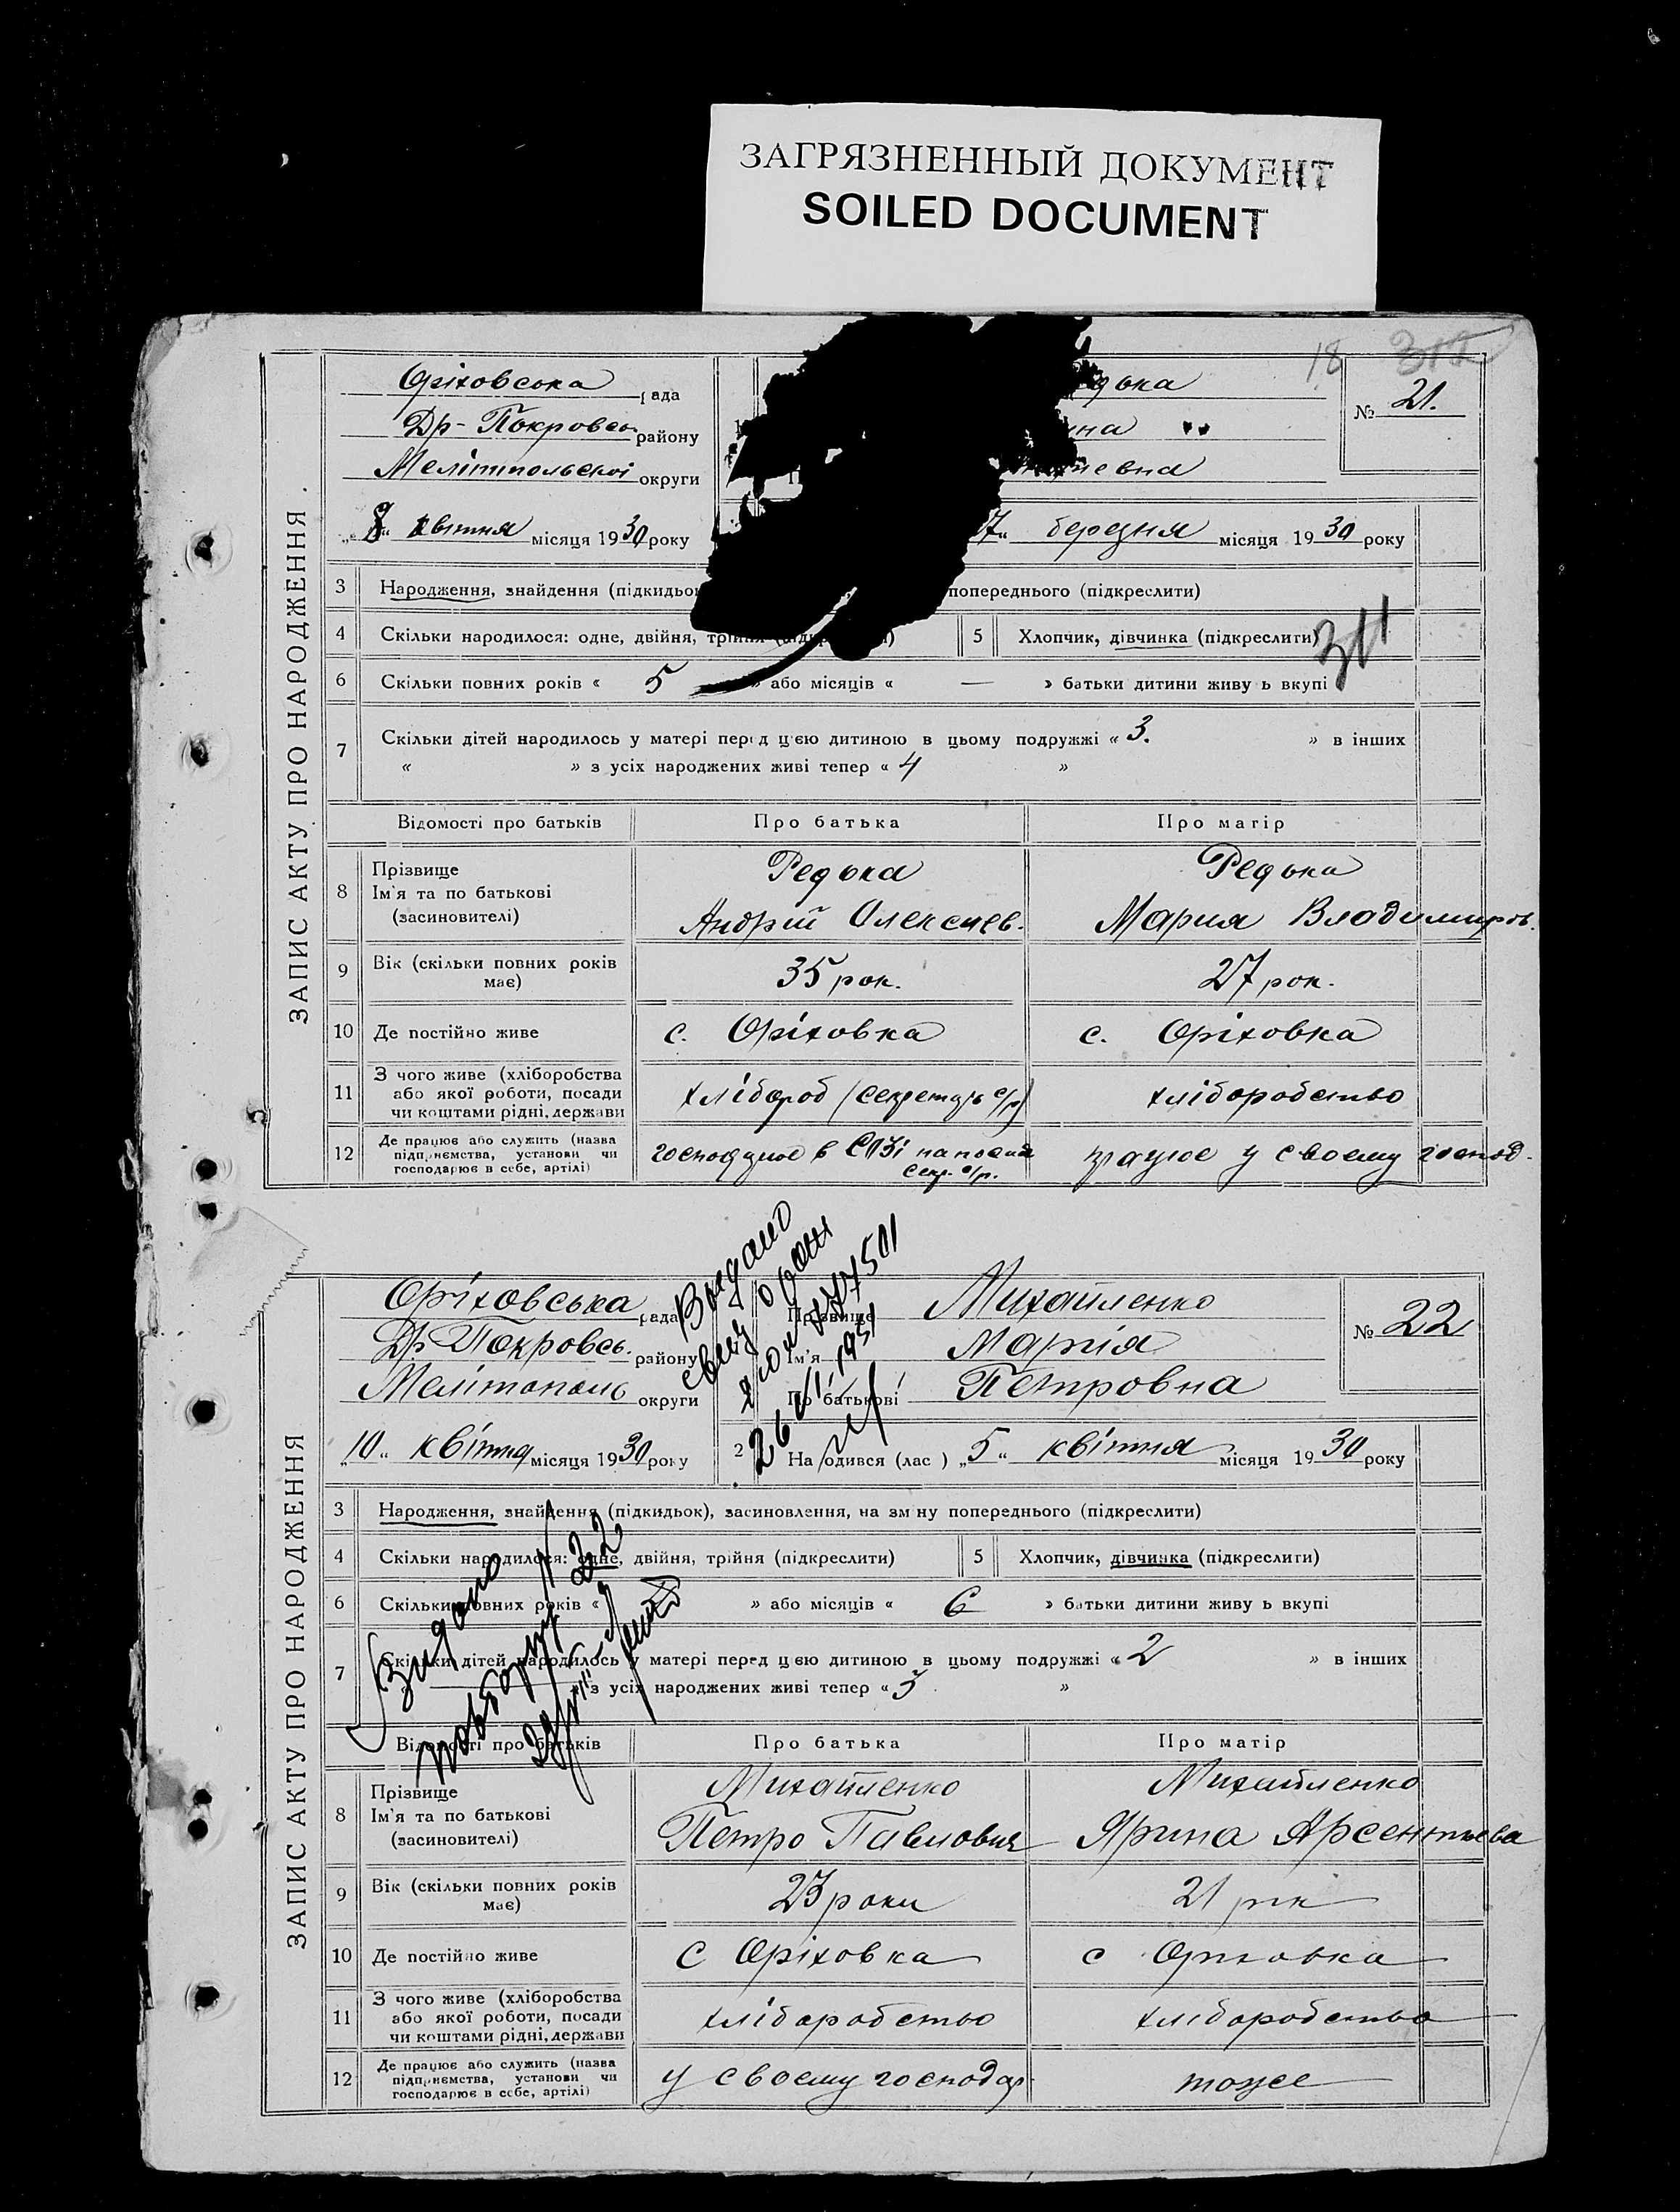 ЗАГРЯЗНЕННЫЙ ДОКУМЕНТ
SOILED DOCUMENT
18
311
ЗАПИС АКТУ ПРО НАРОДЖЕННЯ.
Оріховська рада
Др-Покровсь. району
Мелітпольскої округи
№ 21.
квітня місяця 1930 року
7" березня місяця 1930 року
3 Народження, знайдення попереднього (підкреслити)
4 Скільки народилося: одне, двійня, трійня
5 Хлопчик, дівчинка (підкреслити)
6 Скільки повних років « 5 » або місяців « — » батьки дитини живуть вкупі
7 Скільки дітей народилось у матері перед цею дитиною в цьому подружжі « 3. » в інших
« » з усіх народжених живі тепер « 4 »
Відомості про батьків Про батька Про матір
8 Прізвище
Ім'я та по батькові
(засиновителі)
Редька
Андрій Олексиев.
Редька
Мария Владимиров.
9 Вік (скільки повних років
має)
35 рок.
27 рок.
10 Де постійно живе
с. Оріховка
с. Оріховка
11 З чого живе (хліборобства
або якої роботи, посади
чи коштами рідні, держави
хлібороб (секретарь с/р)
хліборобство
12 Де працює або служить (назва
підприємства, установи чи
господарює в себе, артілі)
в СОЗі на посаді
секр. с/р.
працює у своему господ.
ЗАПИС АКТУ ПРО НАРОДЖЕННЯ
Оріховська рада
Др Покровсь. району
Мелітополь округи
Выдано
Прізвище Михайленко
Ім'я Марія
По батькові Петровна
№ 22
„10" квітня місяця 1930 року
2 Народився (лас ) „5" квітня місяця 1930 року
3 Народження, знайдення (підкидьок), засиновлення, на зміну попереднього (підкреслити)
4 Скільки народилося: одне, двійня, трійня (підкреслити)
5 Хлопчик, дівчинка (підкреслити)
6 Скільки повних років « » або місяців « 6 » батьки дитини живуть вкупі
7 Скільки дітей народилось у матері перед цею дитиною в цьому подружжі « 2 » в інших
» з усіх народжених живі тепер « 3 »
Видано
Відомості про батьків Про батька Про матір
8 Прізвище
Ім'я та по батькові
(засиновителі)
Михайленко
Петро Павлович
Михайленко
Ярина Арсентьева
9 Вік (скільки повних років
має)
23 роки
21 рік
10 Де постійно живе
с Оріховка
с Оріховка
11 З чого живе (хліборобства
або якої роботи, посади
чи коштами рідні, держави
хліборобство
хліборобство
12 Де працює або служить (назва
підприємства, установи чи
господарює в себе, артілі)
у своему господар.
тоже